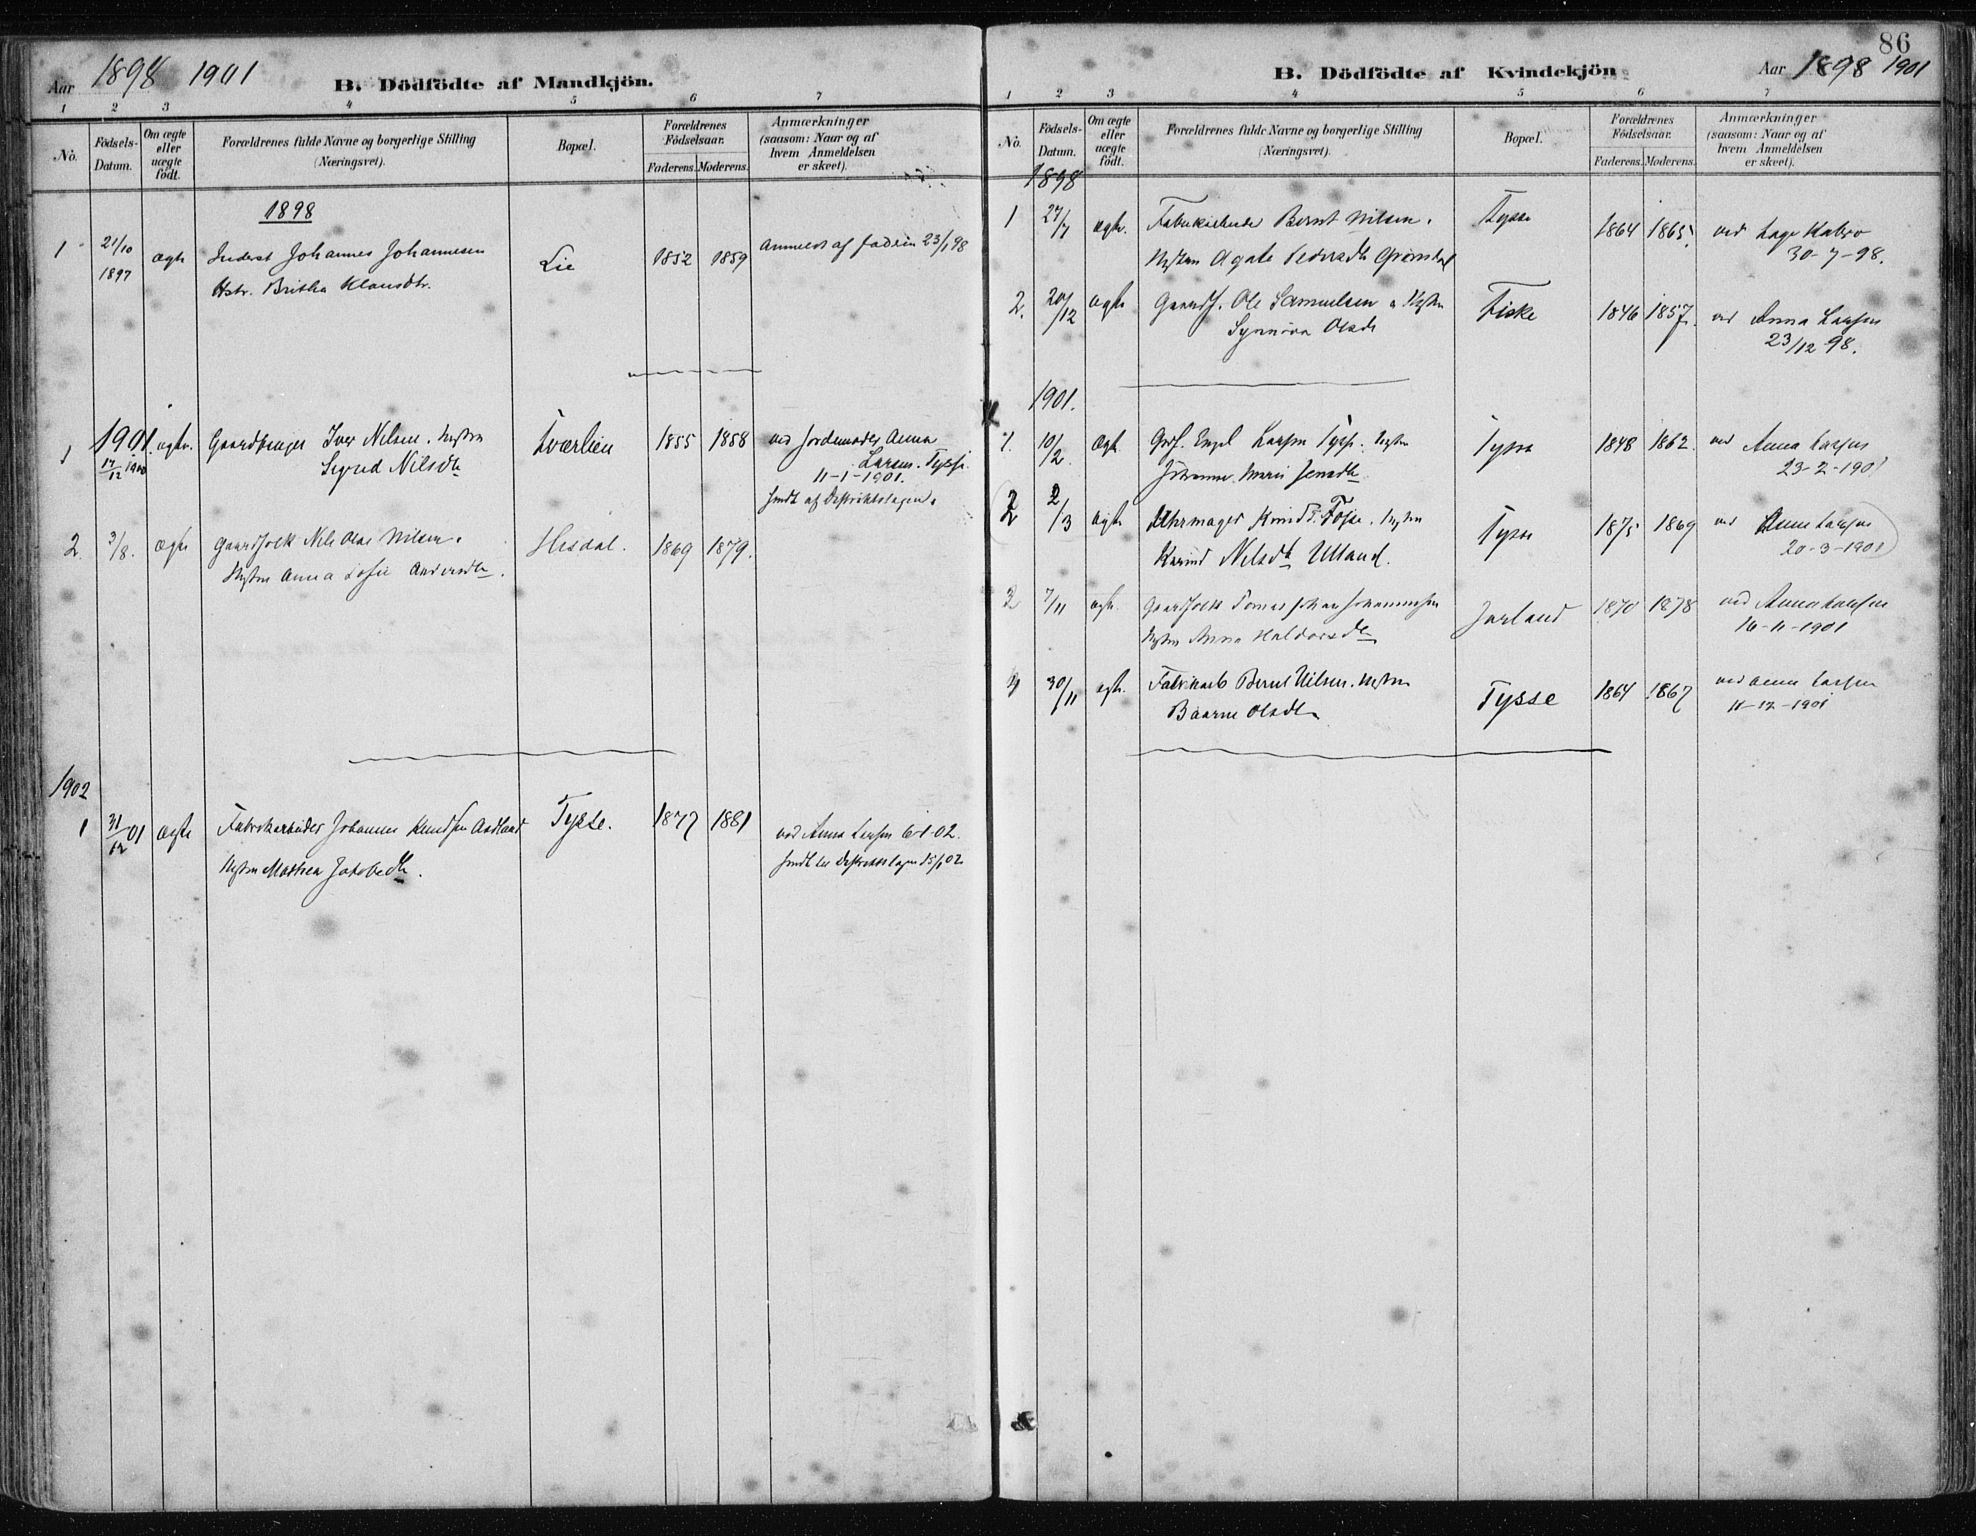 Aar 1898 1901
B. Dödfödte af Mandkjön.
1 2 3 4 5 6 7
No. Födsels-Datum. Om ægte eller uægte födt. Forældrenes fulde Navne og borgerlige Stilling (Næringsvei). Bopæl. Forældrenes Födselsaar. Faderens. Moderens. Anmærkninger (saasom: Naar og af hvem Anmeldelsen er skeet).
1898
1 21/10 1897 ægte Inderst Johannes Johannesen Lie 1852 1859 Anmeldt af faderen 23/1 98
Hstr. Britha Klausdtr.
1901
1 17/12 1900 ægte. Gaardbruger Iver Nilsen. Hustru Tværlien 1855 1858 ved Jordemoder Anna
Sigrid Nilsdtr Larsen. Tysse
11-1-1901.
sendt af Distriktslægen.
2. 3/8. ægte Gaardfolk Nils Olai Nilsen. Hisdal. 1869 1879.
Hustru Anna Sofie Andersdtr.
1902
1 31/12 01 ægte Fabrikarbeider Johannes Knudsen Aadland Tysse. 1877 1881 ved Anna Larsen 6-1-02.
Hustru Mathea Jakobsdtr. sendt til Distriktslægen 15/1 02
86
B. Dödfödte af Kvindekjön
Aar 1898 1901
1 2 3 4 5 6 7
No. Födsels-Datum. Om ægte eller uægte födt. Forældrenes fulde Navne og borgerlige Stilling (Næringsvei). Bopæl. Forældrenes Födselsaar. Faderens. Moderens. Anmærkninger (saasom: Naar og af hvem Anmeldelsen er skeet).
1898
1 27/7 ægte. Fabrikarbeider Bernt Nilsen. Tysse 1864 1865. ved
Hustru Agate Pedersdtr Grønsdal 30-7-98.
2. 20/12 ægte Gaardf. Ole Samuelsen o Hustru Fiske 1846 1857. ved Anna Larsen
Synnøva Olsdtr 23/12 98.
1901.
1. 10/2. ægte. Grdf. Engel Larsen Tysse. Hustru Tysse 1848 1862. ved Anna Larsen
Johanne Marie Jensdtr 23-2-1901
2 2/3 ægte Uhrmager Knud T. Fosse. Hustru Tysse 1875 1869 ved Anna Larsen
Karind Nilsdtr Ulland. 20-3-1901
3 7/11 ægte. Gaardfolk Tomas Johan Johannessen Jarland 1870 1878 ved Anna Larsen
Hustru Anna Haldorsdtr 16-11-1901
4 30/11 ægte. Fabrikarb Bernt Nilsen. Hustru Tysse 1864 1867 ved Anna Larsen
Baarne Olsdtr 11-12-1901